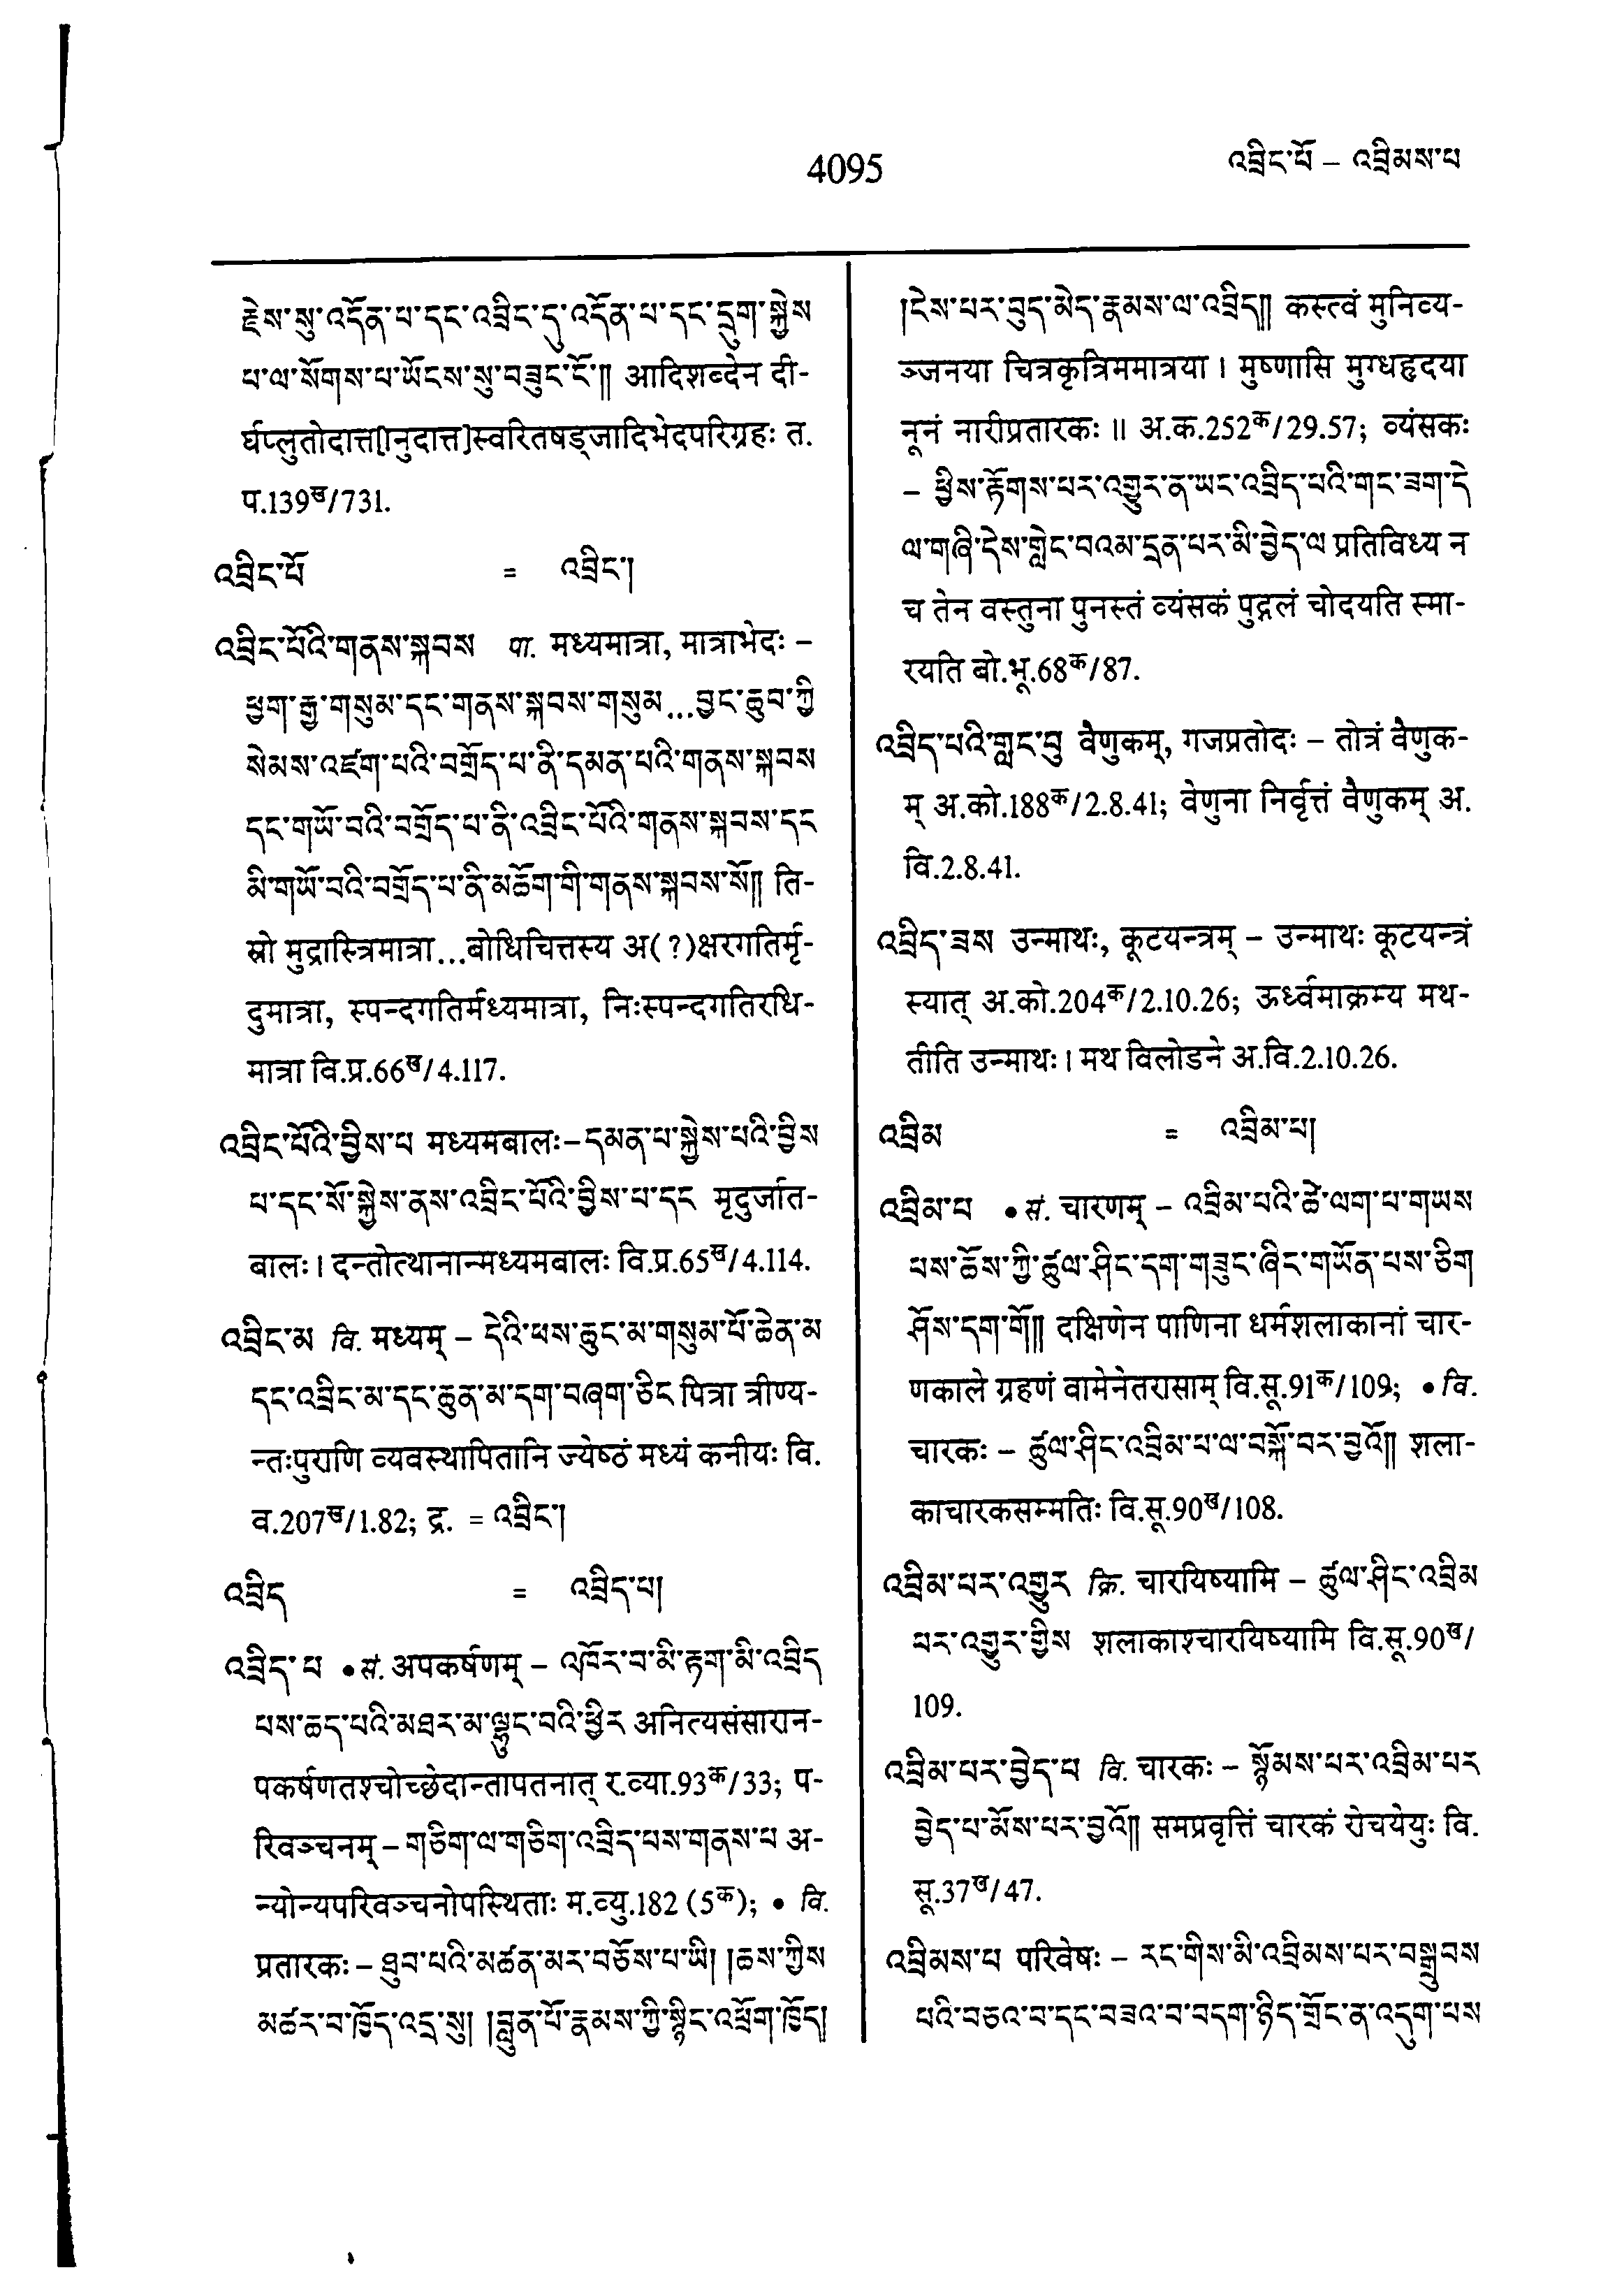 4095
འབྲིང་པོ – འབྲིམས་པ
རྗེས་སུ་འདོན་པ་དང་འབྲིང་དུ་འདོན་པ་དང་དྲུག་སྐྱེས
པ་ལ་སོགས་པ་ཡོངས་སུ་བཟུང་ངོ་༎ आदिशब्देन दी-
र्घप्लुतोदात्त[ानुदात्त]स्वरितषड्जादिभेदपरिग्रहः त.
प.139ख/731.
འབྲིང་པོ = འབྲིང་།
འབྲིང་པོའི་གནས་སྐབས पा. मध्यमात्रा, मात्राभेदः –
ཕྱག་རྒྱ་གསུམ་དང་གནས་སྐབས་གསུམ…བྱང་ཆུབ་ཀྱི
སེམས་འཛག་པའི་བགྲོད་པ་ནི་དམན་པའི་གནས་སྐབས
དང་གཡོ་བའི་བགྲོད་པ་ནི་འབྲིང་པོའི་གནས་སྐབས་དང
མི་གཡོ་བའི་བགྲོད་པ་ནི་མཆོག་གི་གནས་སྐབས་སོ༎ ति-
स्रो मुद्रास्त्रिमात्रा…बोधिचित्तस्य अ(?)क्षरगतिर्मृ-
दुमात्रा, स्पन्दगतिर्मध्यमात्रा, निःस्पन्दगतिरधि-
मात्रा वि.प्र.66ख/4.117.
འབྲིང་པོའི་བྱིས་པ मध्यमबालः–དམན་པ་སྐྱེས་པའི་བྱིས
པ་དང་སོ་སྐྱེས་ནས་འབྲིང་པོའི་བྱིས་པ་དང मृदुर्जात-
बालः। दन्तोत्थानान्मध्यमबालः वि.प्र.65ख/4.114.
འབྲིང་མ वि. मध्यम् – དེའི་ཕས་ཆུང་མ་གསུམ་པོ་ཆེན་མ
དང་འབྲིང་མ་དང་ཆུན་མ་དག་བཞག་ཅིང पित्रा त्रीण्य-
न्तःपुराणि व्यवस्थापितानि ज्येष्ठं मध्यं कनीयः वि.
व.207ख/1.82; द्र. = འབྲིང་།
འབྲིད = འབྲིད་པ།
འབྲིད་པ • सं. अपकर्षणम् – འཁོར་བ་མི་རྟག་མི་འབྲིད
པས་ཆད་པའི་མཐར་མ་ལྷུང་བའི་ཕྱིར अनित्यसंसारान-
पकर्षणतश्चोच्छेदान्तापतनात् र.व्या.93क/33; प-
रिवञ्चनम् – གཅིག་ལ་གཅིག་འབྲིད་པས་གནས་པ अ-
न्योन्यपरिवञ्चनोपस्थिताः म.व्यु.182 (5क); • वि.
प्रतारकः – ཐུབ་པའི་མཚན་མར་བཅོས་པ་ཡི། །ཆས་ཀྱིས
མཚར་བ་ཁྱོད་འདྲ་སུ། །བླུན་པོ་རྣམས་ཀྱི་སྙིང་འཕྲོག་ཁྱོད།
།ངེས་པར་བུད་མེད་རྣམས་ལ་འབྲིད༎ कस्त्वं मुनिव्य-
ञ्जनया चित्रकृत्रिममात्रया। मुष्णासि मुग्धहृदया
नूनं नारीप्रतारकः॥ अ.क.252क/29.57; व्यंसकः
– ཕྱིས་རྟོགས་པར་འགྱུར་ན་ཡང་འབྲིད་པའི་གང་ཟག་དེ
ལ་གཞི་དེས་གླེང་བའམ་དྲན་པར་མི་བྱེད་ལ प्रतिविध्य न
च तेन वस्तुना पुनस्तं व्यंसकं पुद्गलं चोदयति स्मा-
रयति बो.भू.68क/87.
འབྲིད་པའི་གླང་བུ वैणुकम्, गजप्रतोदः – तोत्रं वैणुक-
म् अ.को.188क/2.8.41; वेणुना निर्वृत्तं वैणुकम् अ.
वि.2.8.41.
འབྲིད་ཟས उन्माथः, कूटयन्त्रम् – उन्माथः कूटयन्त्रं
स्यात् अ.को.204क/2.10.26; ऊर्ध्वमाक्रम्य मथ-
तीति उन्माथः। मथ विलोडने अ.वि.2.10.26.
འབྲིམ = འབྲིམ་པ།
འབྲིམ་པ • सं. चारणम् – འབྲིམ་པའི་ཚེ་ལག་པ་གཡས
པས་ཆོས་ཀྱི་ཚུལ་ཤིང་དག་གཟུང་ཞིང་གཡོན་པས་ཅིག
ཤོས་དག་གོ༎ दक्षिणेन पाणिना धर्मशलाकानां चार-
णकाले ग्रहणं वामेनेतरासाम् वि.सू.91क/109; • वि.
चारकः – ཚུལ་ཤིང་འབྲིམ་པ་ལ་བསྐོ་བར་བྱའོ༎ शला-
काचारकसम्मतिः वि.सू.90ख/108.
འབྲིམ་པར་འགྱུར क्रि. चारयिष्यामि – ཚུལ་ཤིང་འབྲིམ
པར་འགྱུར་གྱིས शलाकाश्चारयिष्यामि वि.सू.90ख/
109.
འབྲིམ་པར་བྱེད་པ वि. चारकः – སྙོམས་པར་འབྲིམ་པར
བྱེད་པ་མོས་པར་བྱའོ༎ समप्रवृत्तिं चारकं रोचयेयुः वि.
सू.37ख/47.
འབྲིམས་པ परिवेषः – རང་གིས་མི་འབྲིམས་པར་བསྒྲུབས
པའི་བཅའ་བ་དང་བཟའ་བ་བདག་ཉིད་གྲོང་ན་འདུག་པས